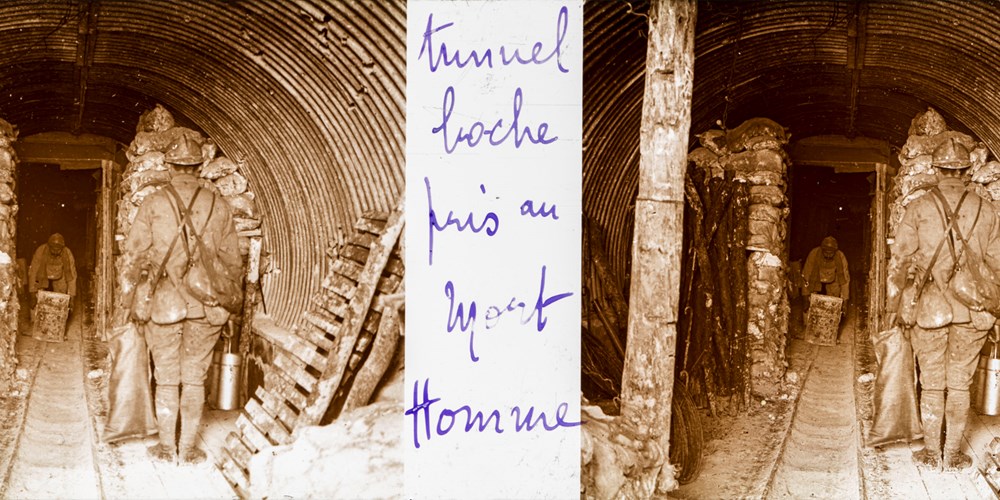 tunnel
boche
pris au
Mort
Homme